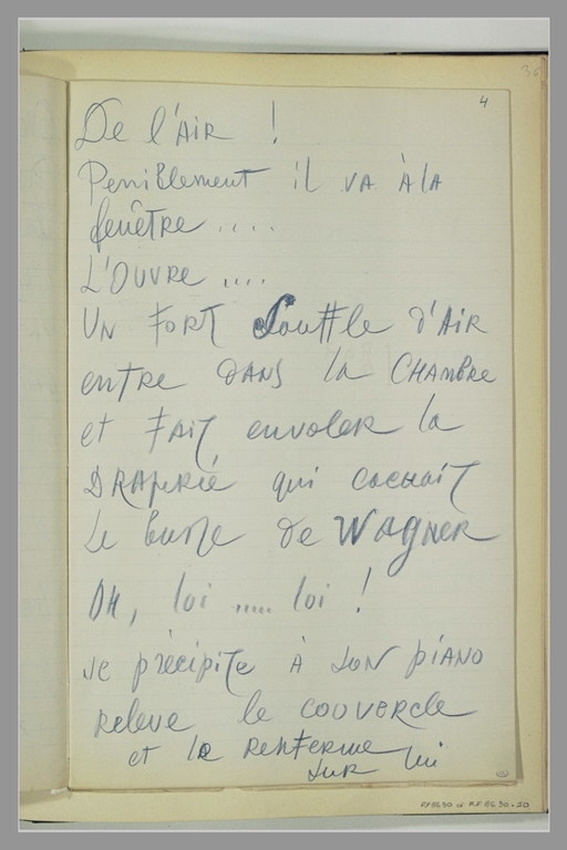 36
4
De l'AiR !
Peniblement il VA À la
fenêtre ....
L'OUVRe ....
UN FORT Souffle d'AiR
entre DANS la CHAMBRe
et FAiT envoler la
DRAPeRie qui cachait
le buste de WAgNeR
OH, loi ..... loi !
se précipite à son piANO
Releve le couvercle
et le Renferme
sur lui
RF8630 RF 8630.20